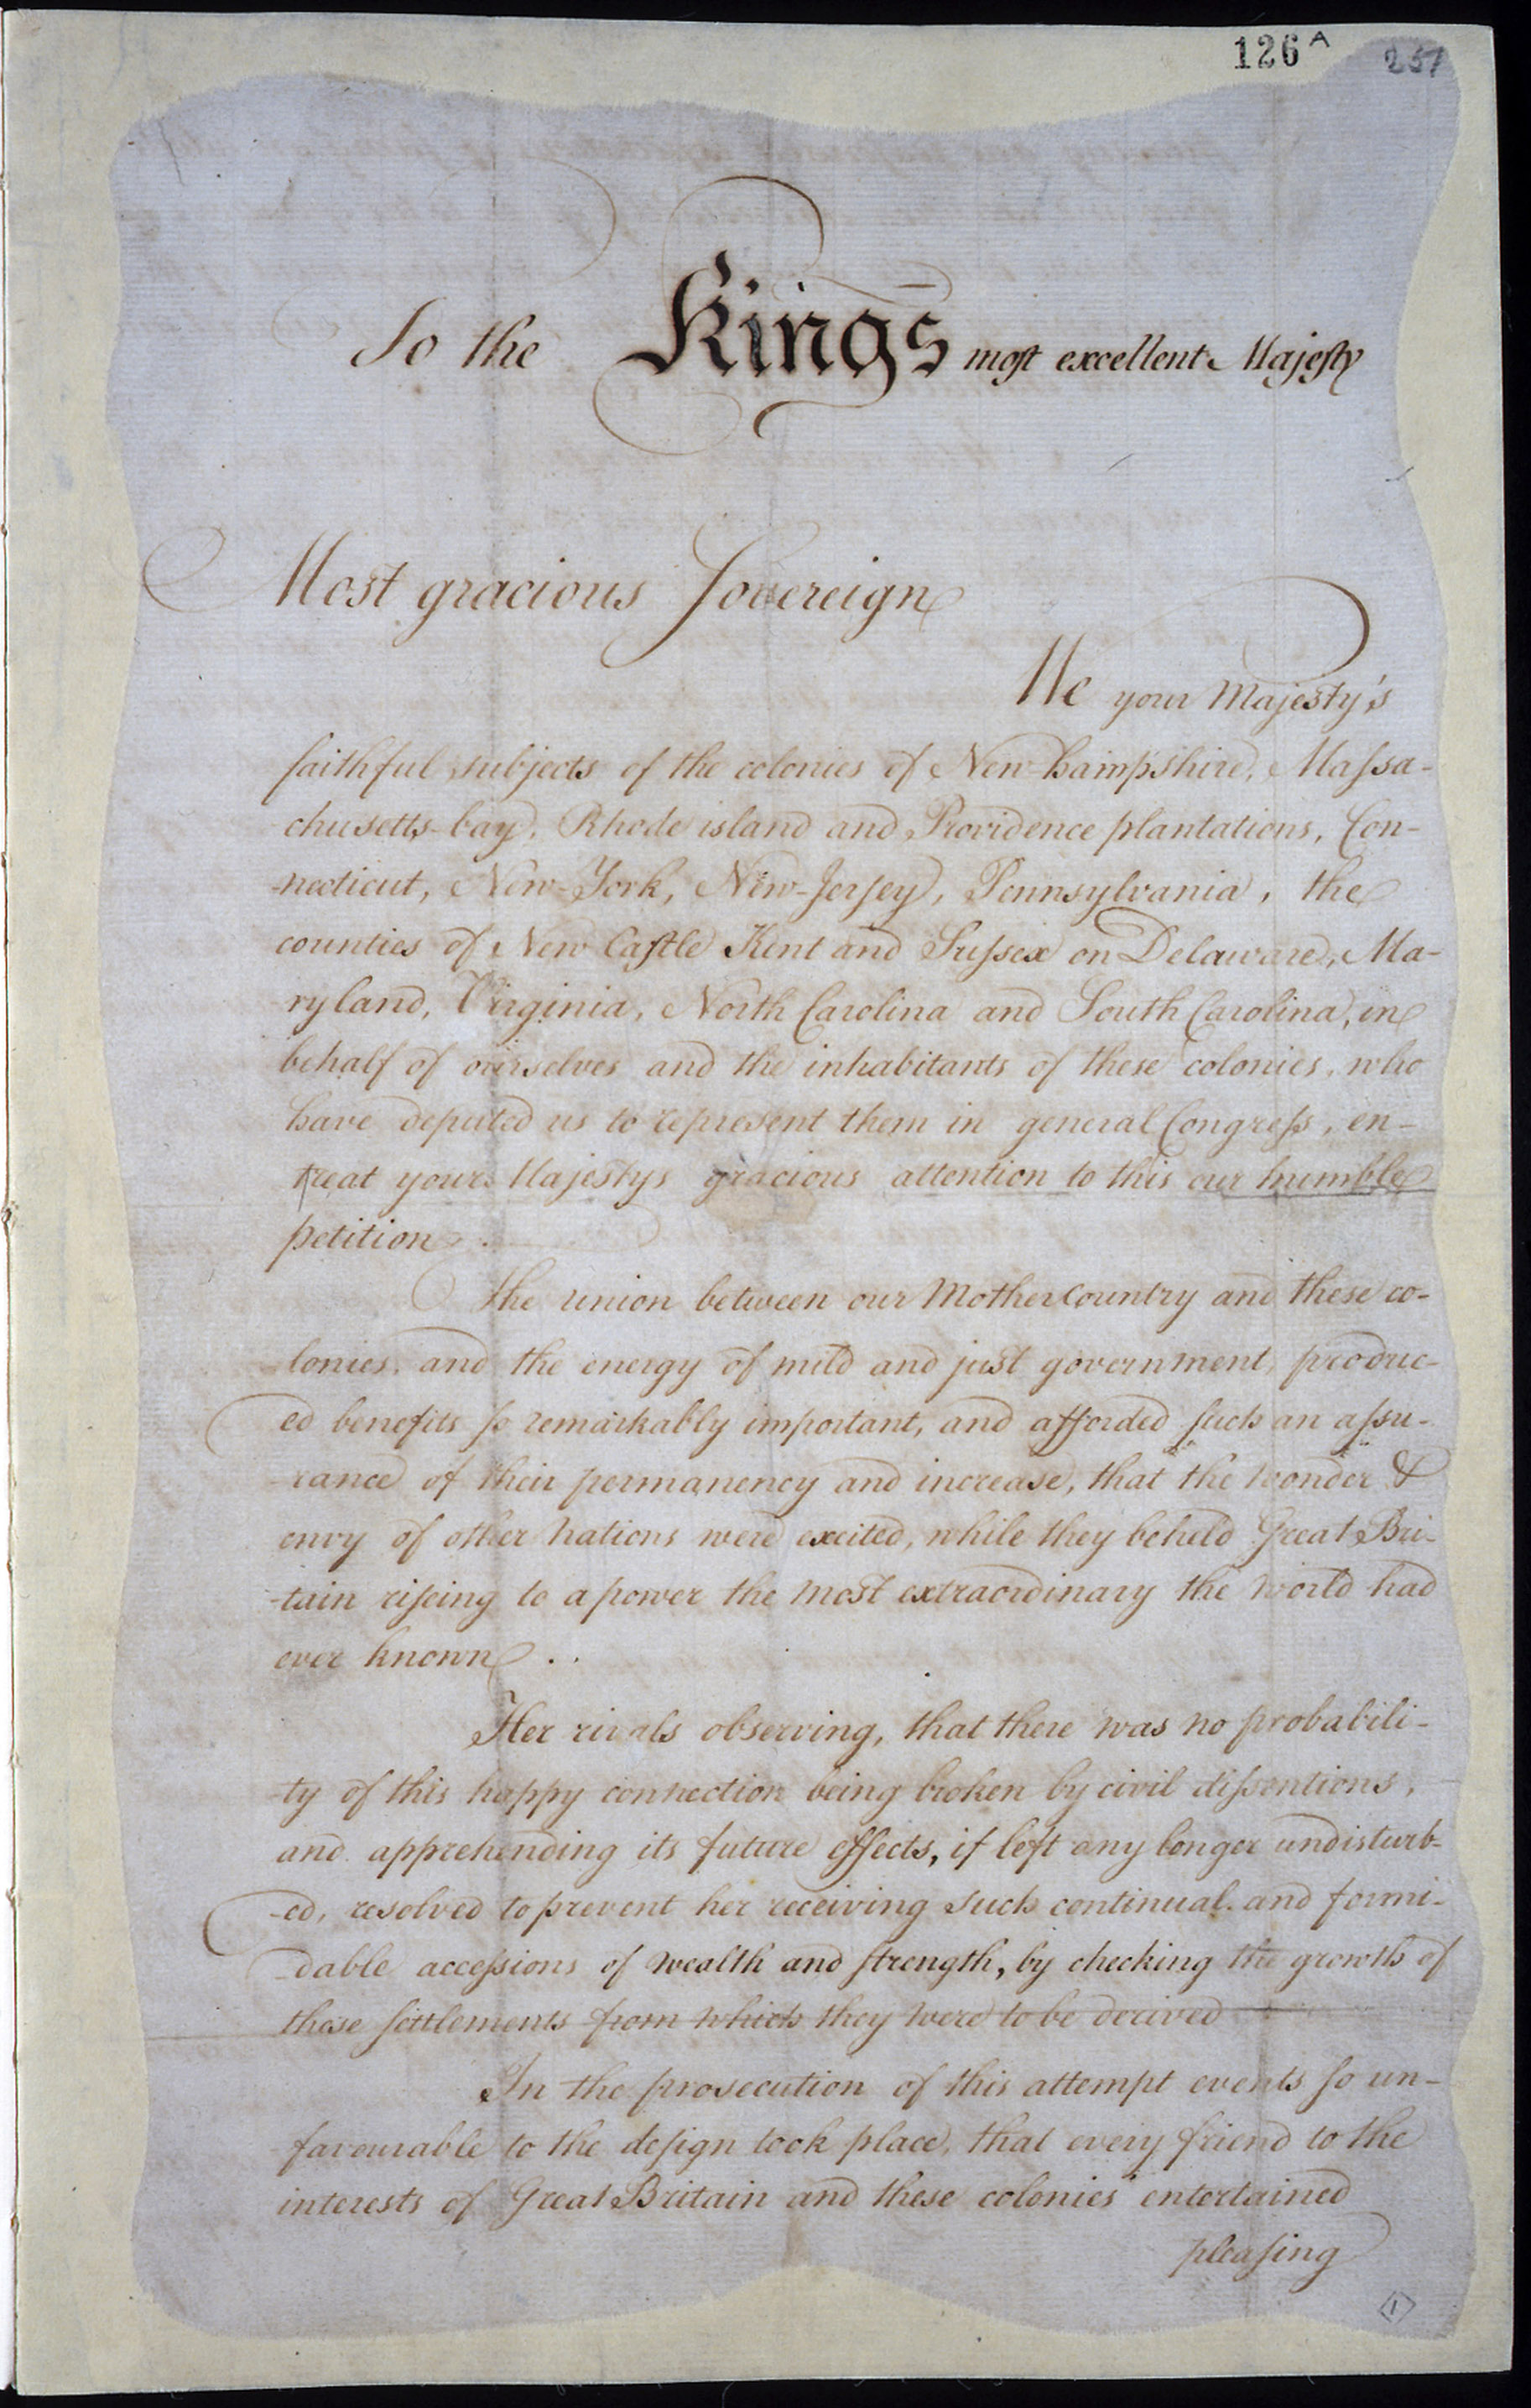 126 A 237
To the Kings most excellent Majesty
Most gracious Sovereign
We your Majesty's
faithful subjects of the colonies of New-hampshire, Massa-
chusetts-bay, Rhode island and Providence plantations, Con-
-necticut, New-York, New-Jersey, Pennsylvania, the
counties of New Castle Kent and Sussex on Delaware, Ma-
ryland, Virginia, North Carolina and South Carolina, in
behalf of ourselves and the inhabitants of these colonies, who
have deputed us to represent them in general Congress, en-
treat your Majestys gracious attention to this our humble
petition.
The union between our Mother Country and these co-
lonies, and the energy of mild and just government, produc-
ed benefits so remarkably important, and afforded such an assu-
-rance of their permanency and increase, that the wonder &
envy of other Nations were excited, while they beheld Great Bri-
-tain riseing to a power the most extraordinary the world had
ever known..
Her rivals observing, that there was no probabili-
-ty of this happy connection being broken by civil dissentions,
and apprehending its future effects, if left any longer undisturb-
-ed, resolved to prevent her receiving such continual and formi-
-dable accessions of wealth and strength, by checking the growth of
these settlements from which they were to be derived
In the prosecution of this attempt events so un-
favourable to the design took place, that every friend to the
interests of Great Britain and these colonies entertained
pleasing
1